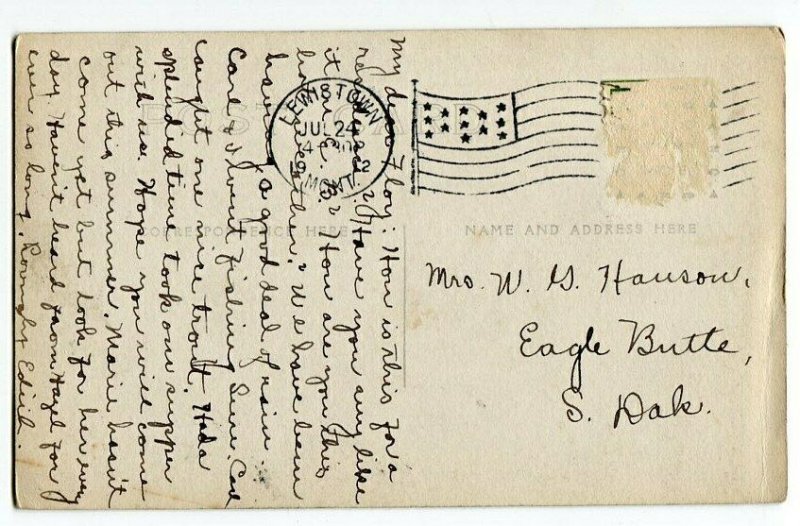 POST CARD
CORRESPONDENCE HERE
NAME AND ADDRESS HERE
LEWISTOWN
JUL 24
MONT.
Mrs. W. G. Hanson,
Eagle Butte,
S. Dak.
My dear Floy: How is this for a
rendezvous? Have you any like
it in E. B.? How are you this
hot weather? We have been
having a good deal of rain.
Carl & I went fishing Sun. Carl
caught one nice trout. Had a
splendid time took our supper
with us. Hope you will come
out this summer. Marie hasn't
come yet but look for her every
day. Haven't heard from Hazel for
ever so long. Lovingly Edith.